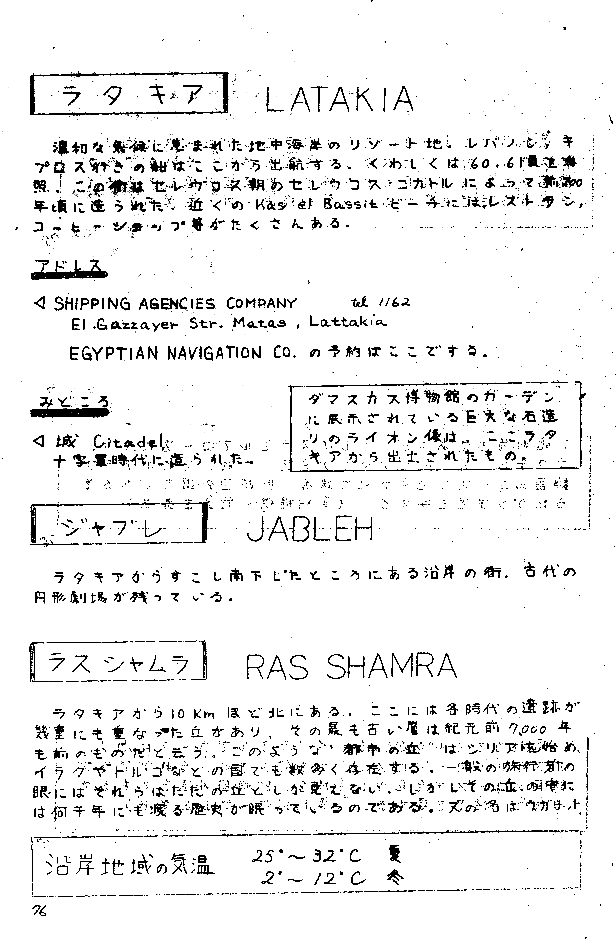 ラタキア LATAKIA
温和な気候に恵まれた地中海岸のリゾート地。レバノン、キ
プロス行きの船はここから出航する。くわしくは60.61頁参
照!この街はセレウコス朝のセレウコス・ニカトルによって前300
年頃に造られた。近くのRas el Bassitビーチにはレストラン,
コーヒーショップ等がたくさんある.
アドレス
◁ SHIPPING AGENCIES COMPANY tel 1162
El.Gazzayer Str. Matas, Lattakia
EGYPTIAN NAVIGATION CO. の予約はここでする.
みどころ
◁ 城 Citadel
十字軍時代に造られた.
ダマスカス博物館のガーデン
に展示されている巨大な石造
りのライオン像は、ここラタ
キアから出土されたもの。
ジャブレ JABLEH
ラタキアからすこし南下したところにある沿岸の街. 古代の
円形劇場が残っている.
ラスシャムラ RAS SHAMRA
ラタキアから10Kmほど北にある. ここには各時代の遺跡が
幾重にも重なった丘があり, その最も古い層は紀元前7,000年
も前のものだと云う. このような"都市の丘"はシリアを始め,
イラクやトルコなどの国でも数多く存在する. 一般の旅行者の
眼にはそれらはただの丘としか見えない. しかしその丘の中に
は何千年にも渡る歴史が眠っているのである. 又の名はウガリット
沿岸地域の気温 25°~32°C 夏
2°~12°C 冬
76